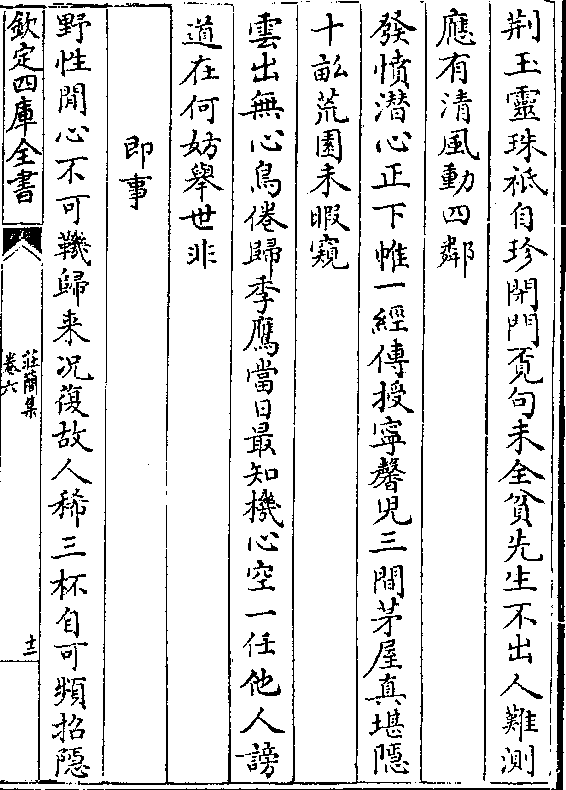 荆玉靈珠祇自珍閉門覔句未全貧先生不出人難測
應有清風動四鄰
發憤潛心正下帷一經傳授寧馨兒三間茅屋真堪隠
十畝荒園未暇窺
雲出無心鳥倦歸季鷹當日最知機心空一任他人謗
道在何妨舉世非
即事
野性閒心不可鞿歸来况復故人稀三杯自可頻招隠
欽定四庫全書
莊簡集
卷六
十二